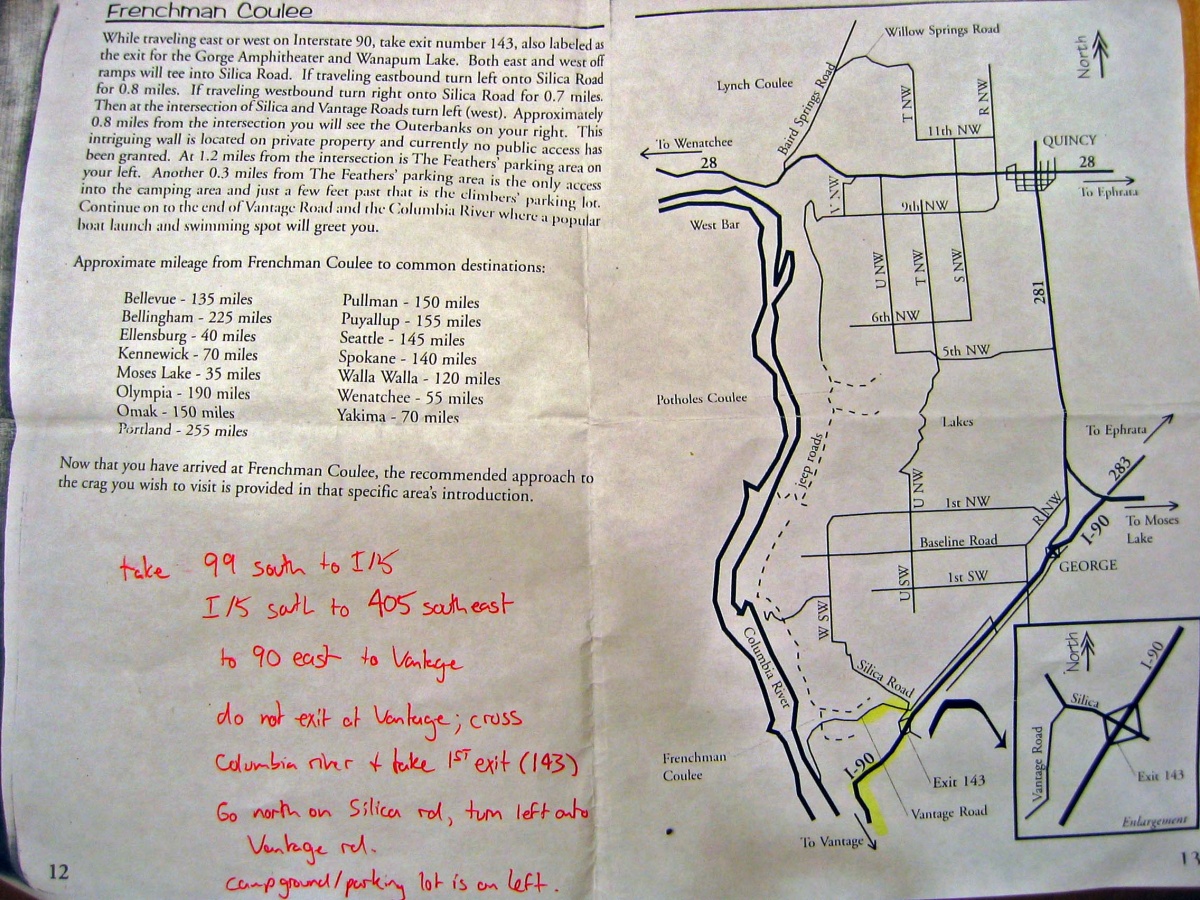 Frenchman Coulee
While traveling east or west on Interstate 90, take exit number 143, also labeled as
the exit for the Gorge Amphitheater and Wanapum Lake. Both east and west off
ramps will tee into Silica Road. If traveling eastbound turn left onto Silica Road
for 0.8 miles. If traveling westbound turn right onto Silica Road for 0.7 miles.
Then at the intersection of Silica and Vantage Roads turn left (west). Approximately
0.8 miles from the intersection you will see the Outerbanks on your right. This
intriguing wall is located on private property and currently no public access has
been granted. At 1.2 miles from the intersection is The Feathers' parking area on
your left. Another 0.3 miles from The Feathers' parking area is the only access
into the camping area and just a few feet past that is the climbers' parking lot.
Continue on to the end of Vantage Road and the Columbia River where a popular
boat launch and swimming spot will greet you.
Approximate mileage from Frenchman Coulee to common destinations:
Bellevue - 135 miles
Bellingham - 225 miles
Ellensburg - 40 miles
Kennewick - 70 miles
Moses Lake - 35 miles
Olympia - 190 miles
Omak - 150 miles
Portland - 255 miles
Pullman - 150 miles
Puyallup - 155 miles
Seattle - 145 miles
Spokane - 140 miles
Walla Walla - 120 miles
Wenatchee - 55 miles
Yakima - 70 miles
Now that you have arrived at Frenchman Coulee, the recommended approach to
the crag you wish to visit is provided in that specific area's introduction.
take 99 south to I/5
I/5 south to 405 southeast
to 90 east to Vantage
do not exit at Vantage; cross
Columbia river + take 1ST exit (143)
Go north on Silica rd, turn left onto
Vantage rd.
campground/parking lot is on left.
12
Willow Springs Road
North
Lynch Coulee
Baird Springs Road
T NW
R NW
11th NW
To Wenatchee
28
QUINCY
28
To Ephrata
V NW
9th NW
West Bar
U NW
T NW
S NW
281
6th NW
5th NW
Potholes Coulee
Lakes
To Ephrata
jeep roads
283
U NW
1st NW
R NW
I-90
To Moses
Lake
Baseline Road
GEORGE
1st SW
U SW
W SW
Columbia River
Silica Road
North
I-90
Silica
Vantage Road
Exit 143
Enlargement
Frenchman
Coulee
I-90
Exit 143
Vantage Road
To Vantage
13